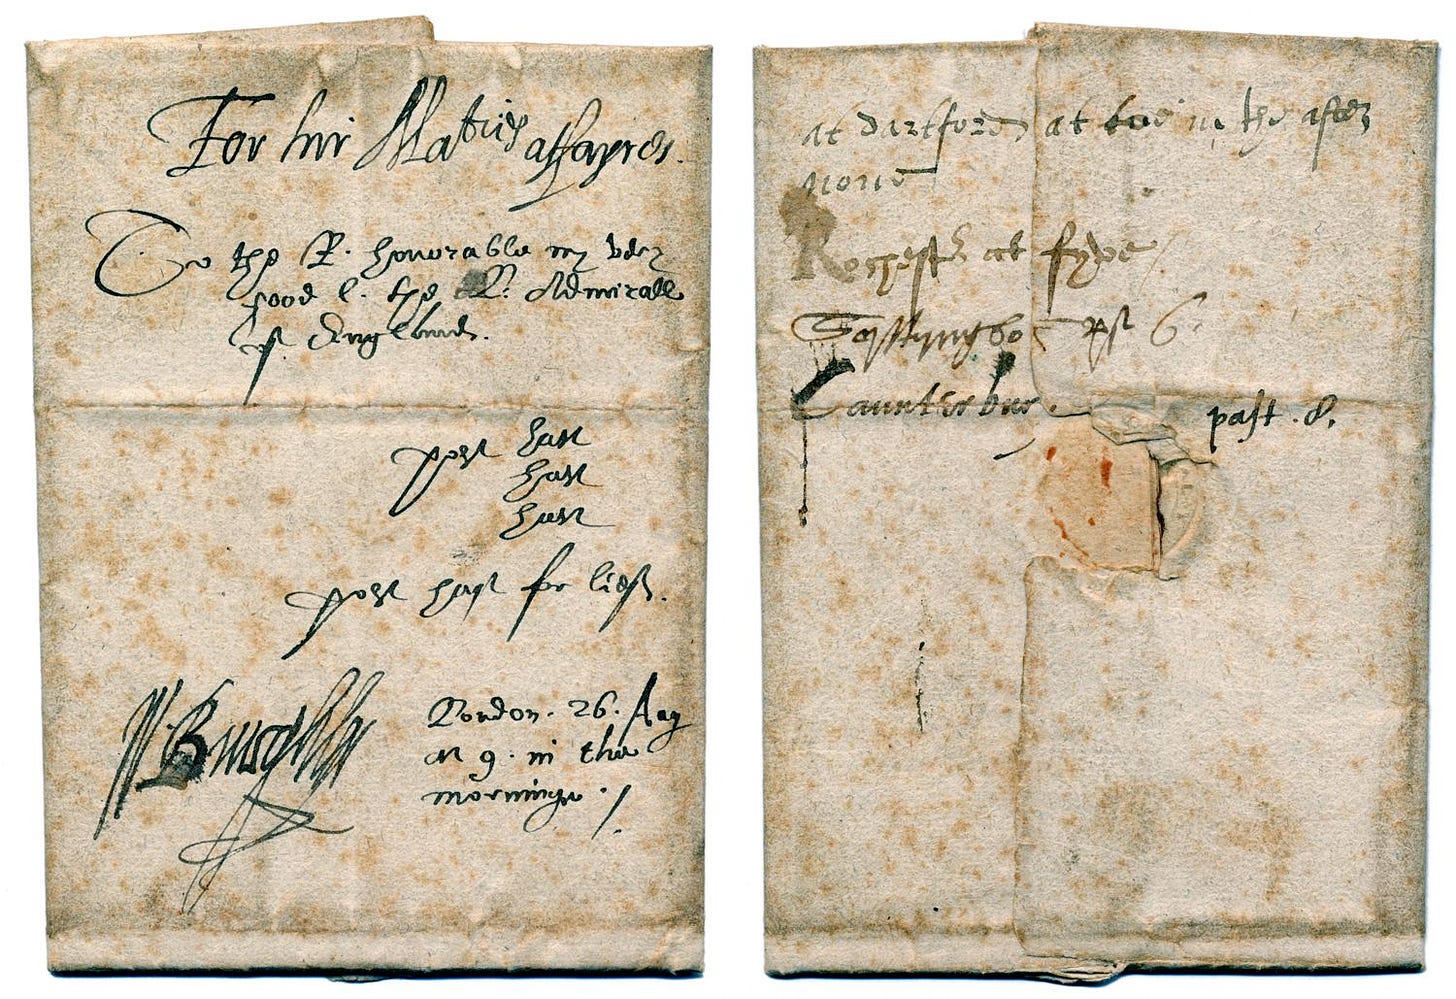 For hir Maties affayres.
To the R. honorable my very
good l. the L. Admirall
of England.
post hast
hast
hast
post hast for lief.
London. 26. Aug
at 9. in the
morninge
at dartford at two in the after
none
Rochester at fyve
Syttyngbor past 6
Caunterbury. past .8.